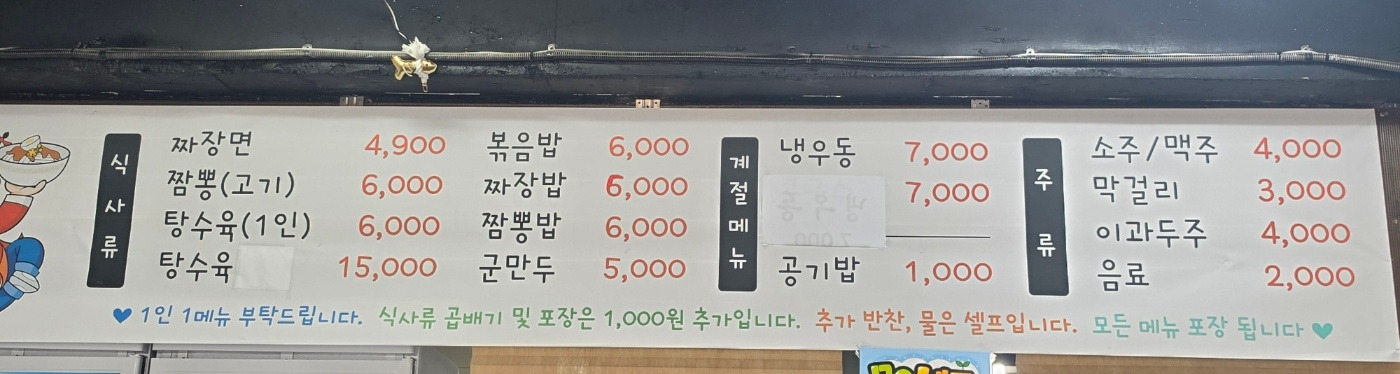 식사류
짜장면 4,900
짬뽕(고기) 6,000
탕수육(1인) 6,000
탕수육 15,000
볶음밥 6,000
짜장밥 6,000
짬뽕밥 6,000
군만두 5,000
계절메뉴
냉우동 7,000
7,000
공기밥 1,000
주류
소주/맥주 4,000
막걸리 3,000
이과두주 4,000
음료 2,000
♥ 1인 1메뉴 부탁드립니다. 식사류 곱배기 및 포장은 1,000원 추가입니다. 추가 반찬, 물은 셀프입니다. 모든 메뉴 포장 됩니다 ♥